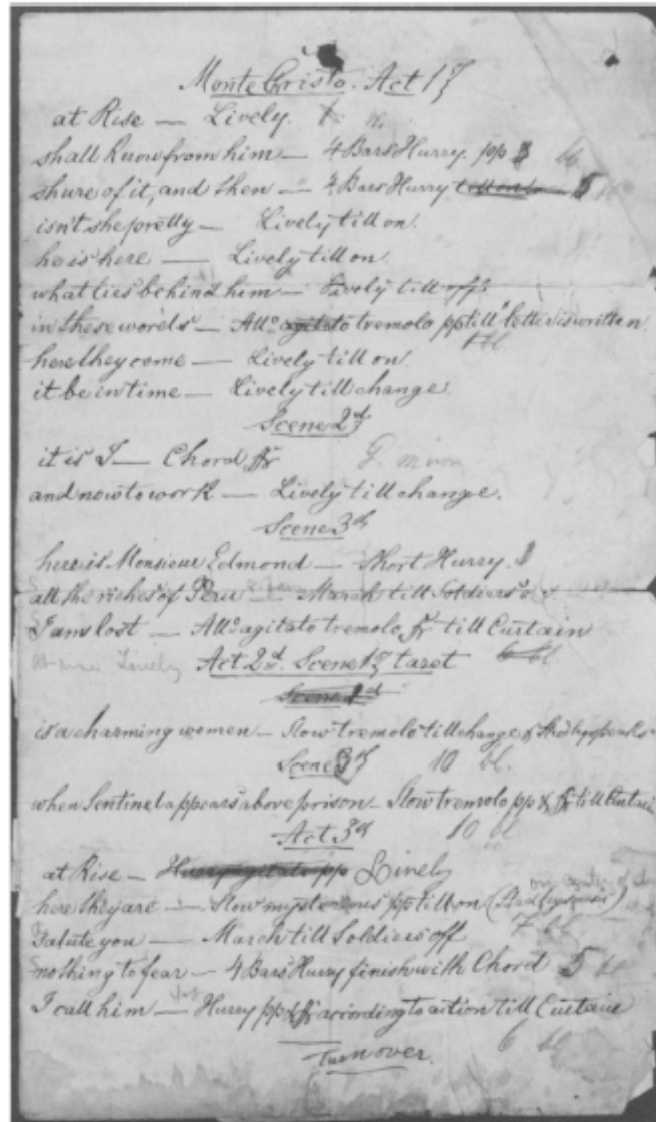 Monte Cristo. Act 1st
at Rise — Lively.
shall Know from him — 4 Bars Hurry. pp
shure of it, and then — 4 Bars Hurry till on 5
isn't she pretty — Lively till on.
he is here — Lively till on.
what lies behind him — Lively till off
in these words — Allo. agitato tremolo pp till letter is written
here they come — Lively till on.
it be in time — Lively till change.
Scene 2d
it is I — Chord ff G minor
and now to work — Lively till change.
Scene 3d
here is Monsieur Edmond — Short Hurry.
all the riches of Peru — March till Soldiers
I am lost — Allo. agitato tremolo ff till Curtain
at rise Lively Act 2d. Scene 1st taset 6
Scene
is a charming women — Slow tremolo till change &
Scene 3d 10
when Sentinel appears above prison — Slow tremolo pp & ff till Curtain
Act 3d 10
at Rise — Hurry agitato pp Lively
here they are — Slow mysterious pp till on
Salute you — March till Soldiers off 7
nothing to fear — 4 Bars Hurry finish with Chord 5
I call him — Hurry pp & ff according to action till Curtain
Turn over. 6